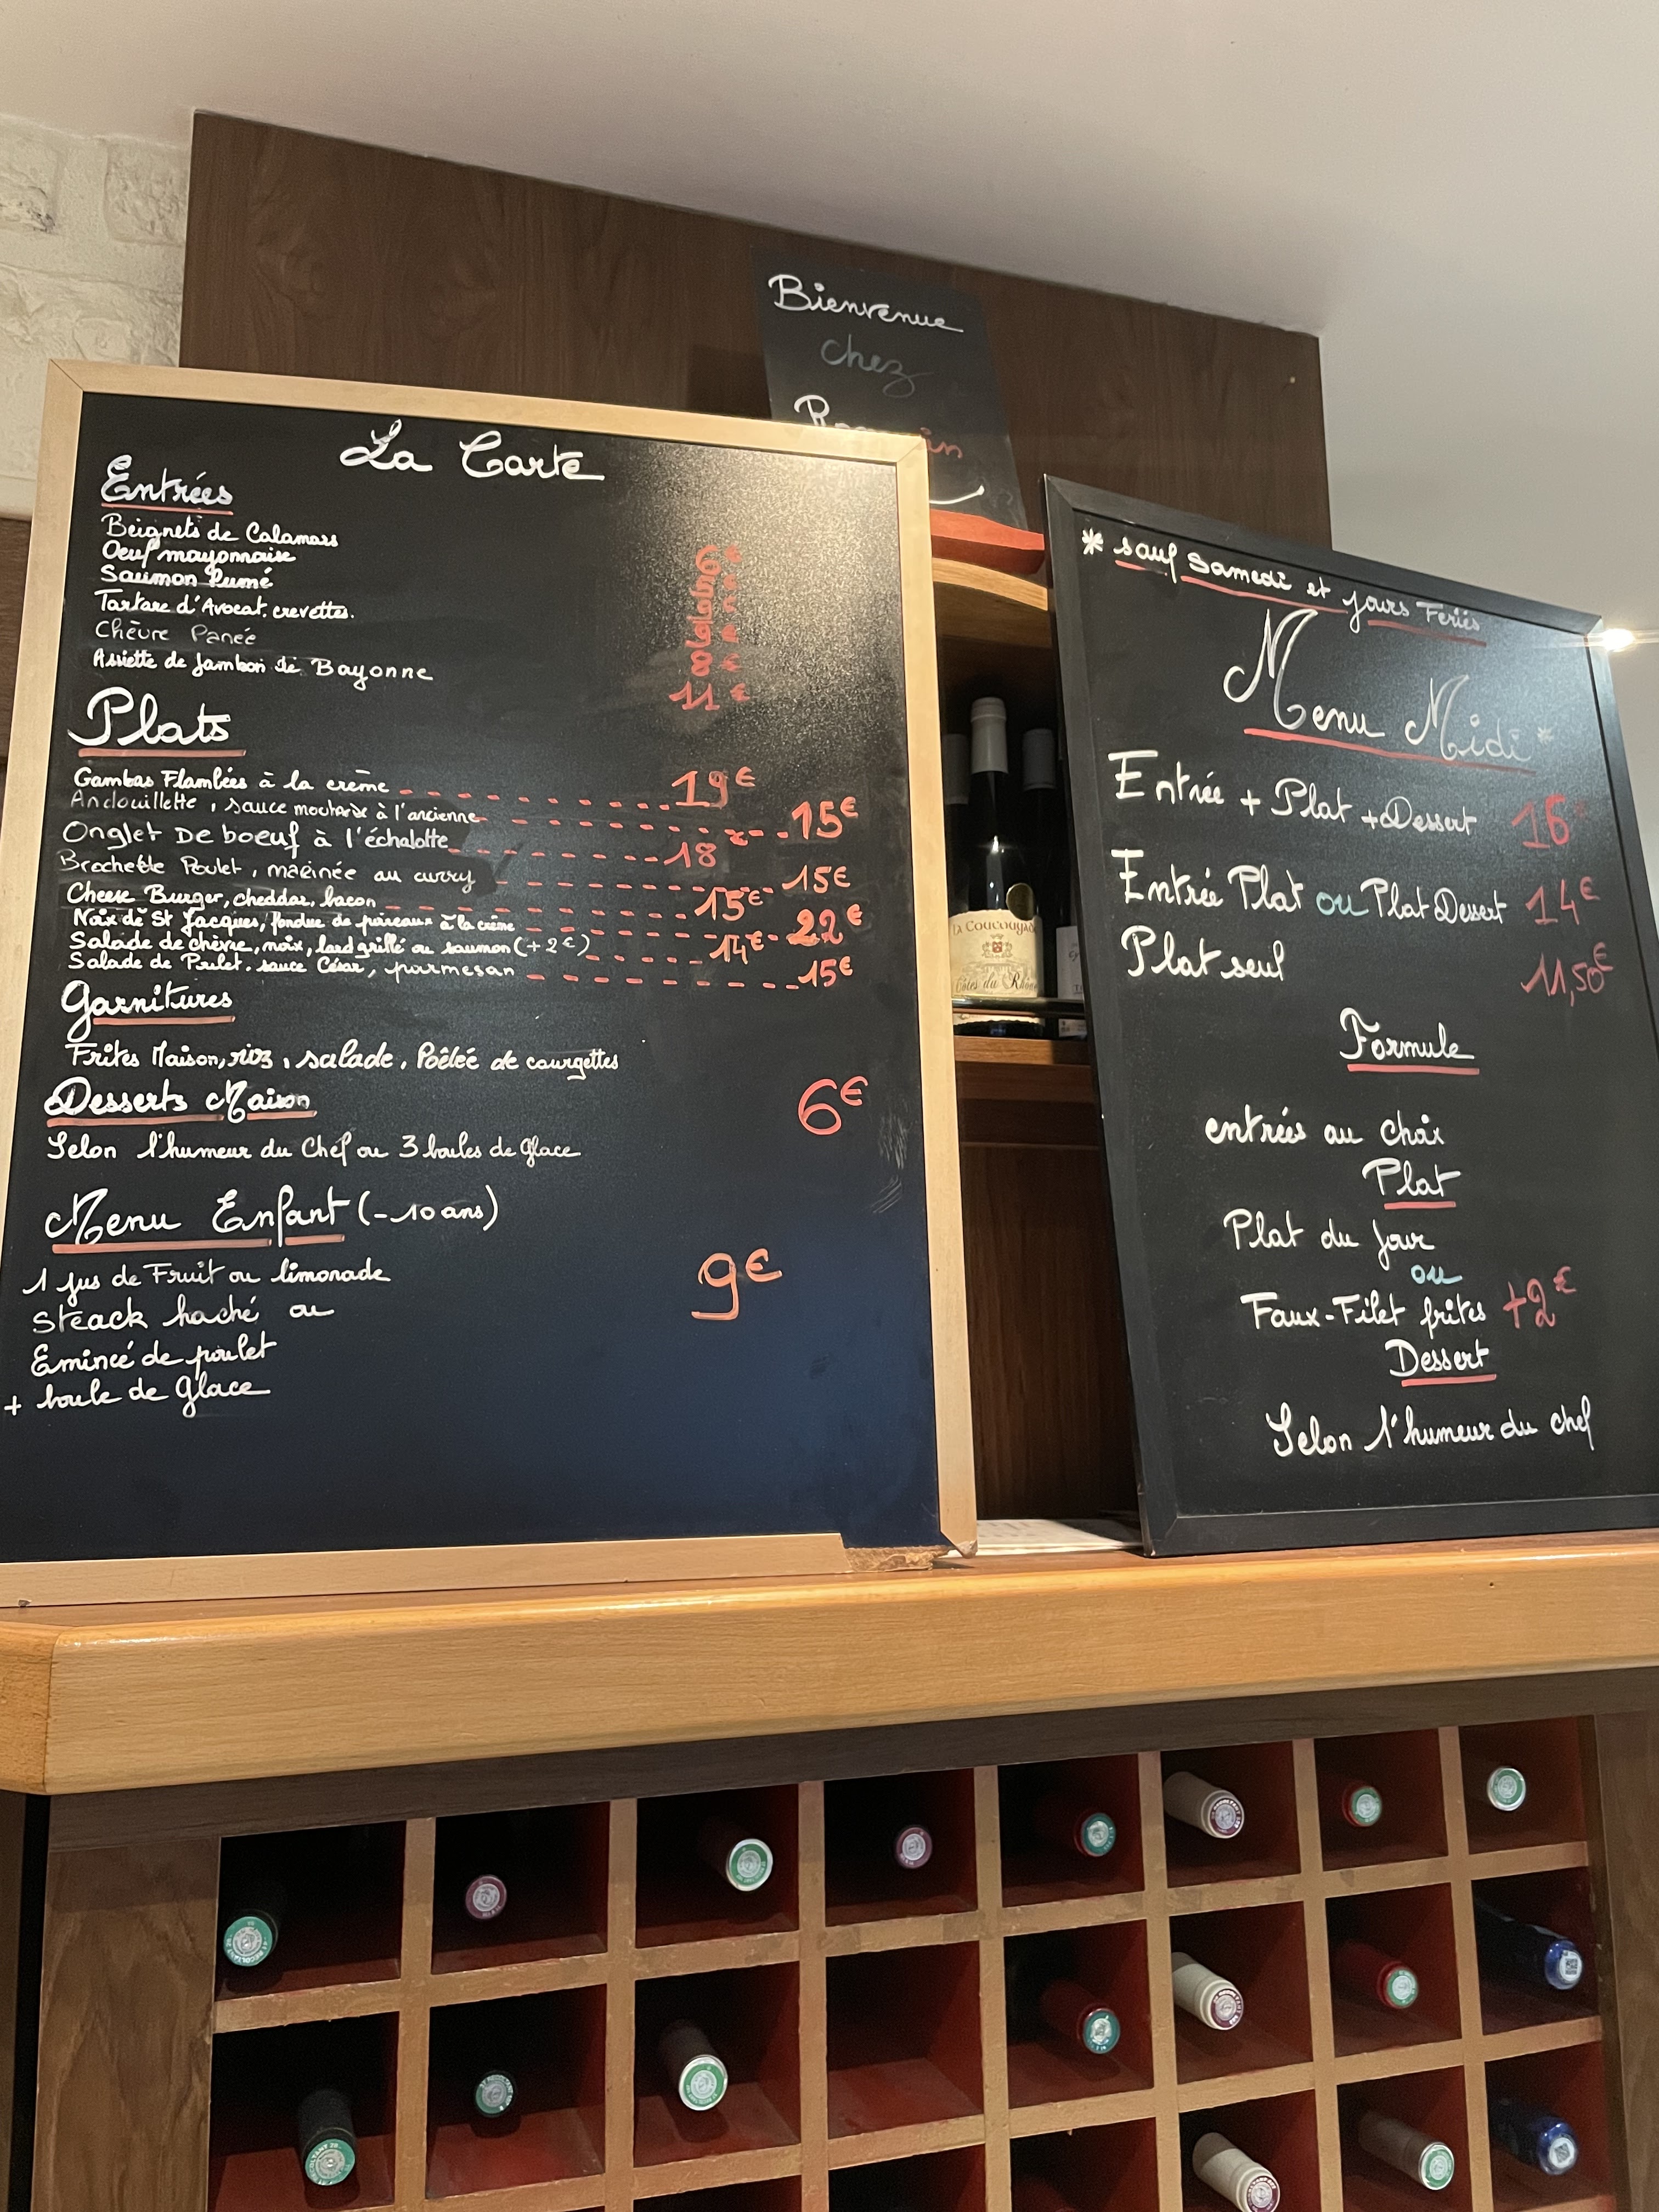 Bienvenue
chez
La Carte
Entrées
Beignets de Calamars 6€
Oeuf mayonnaise
Saumon Fumé
Tartare d'Avocat, crevettes.
Chèvre Panée 8€
Assiette de Jambon de Bayonne 11€
Plats
Gambas Flambées à la crème 19€
Andouillette, sauce moutarde à l'ancienne 15€
Onglet De boeuf à l'échalotte 18€
Brochette Poulet, marinée au curry 15€
Cheese Burger, cheddar, bacon 15€
Noix de St Jacques, fondue de poireaux à la crème 22€
Salade de chèvre, noix, lard grillé ou saumon (+2€) 14€
Salade de Poulet, sauce César, parmesan 15€
Garnitures
Frites Maison, riz, salade, Poêlée de courgettes
Desserts Maison 6€
Selon l'humeur du Chef ou 3 boules de Glace
Menu Enfant (-10 ans)
1 jus de Fruit ou limonade 9€
Steack haché ou
Emincé de poulet
+ boule de Glace
* sauf Samedi et jours Feriés
Menu Midi *
Entrée + Plat + Dessert 16€
Entrée Plat ou Plat Dessert 14€
Plat seul 11,50€
Formule
entrées au choix
Plat
Plat du jour
ou
Faux-Filet frites +2€
Dessert
Selon l'humeur du chef
Côtes du Rhône